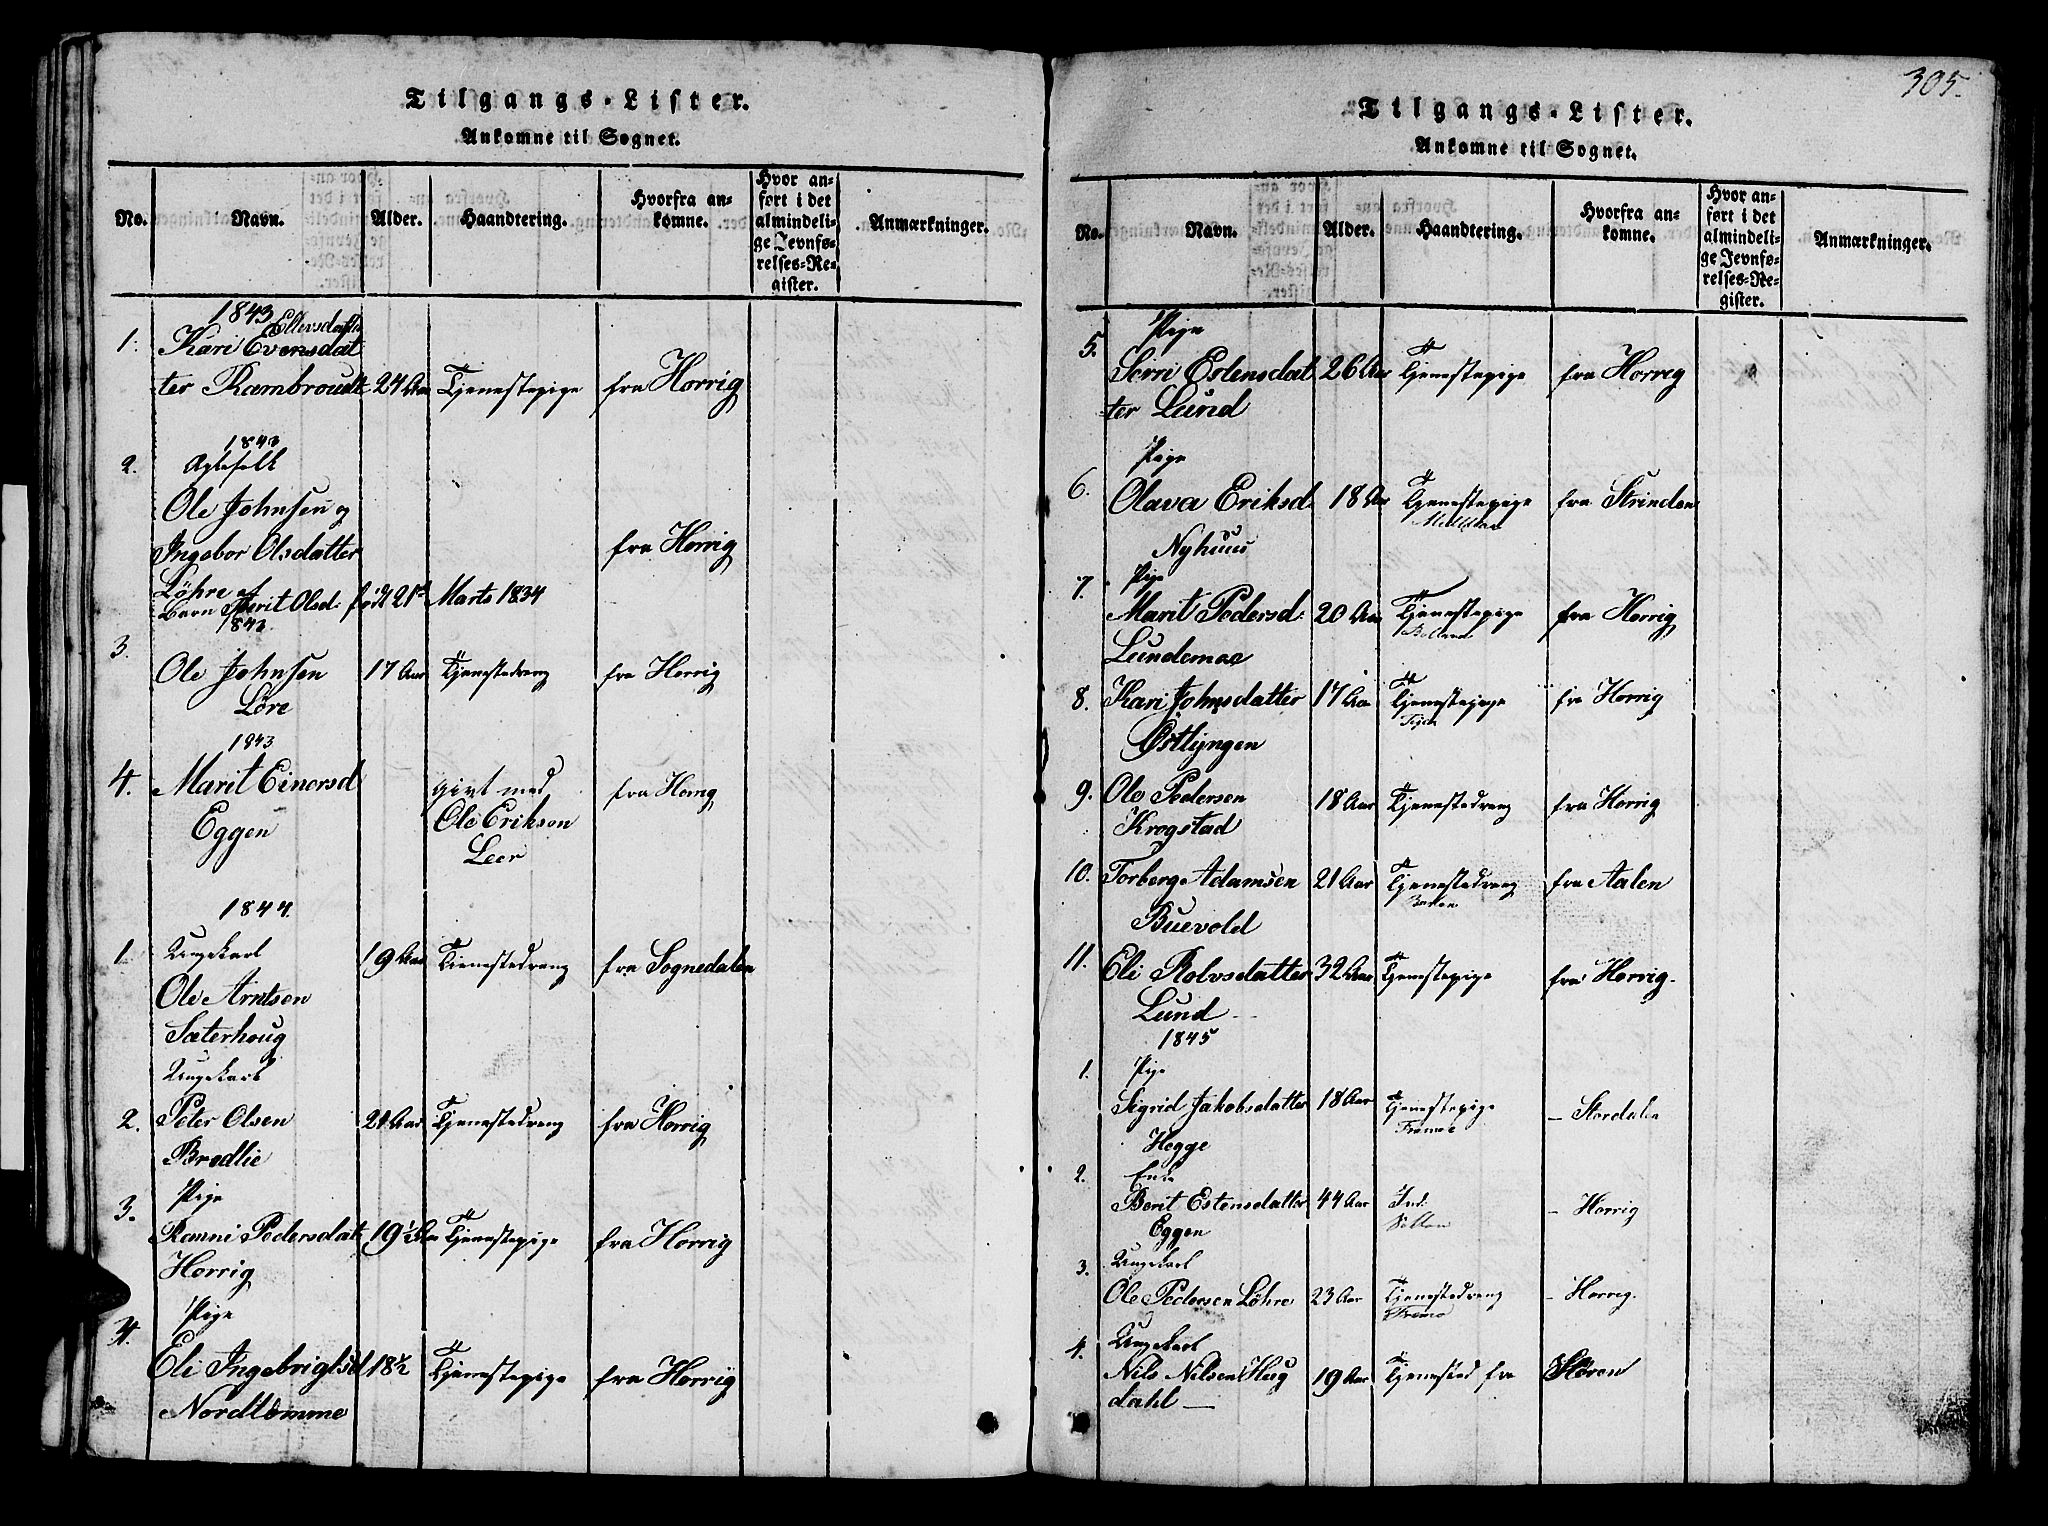 Tilgangs-Lister.
Ankomne til Sognet.
No.
Navn.
Alder.
Haandtering.
Hvorfra an=
komne.
Hvor an=
ført i det
almindeli=
ge Jevnfø=
relses-Re=
gister.
Anmærkninger.
1843
1. Kari Evensdat
ter Rambrout 24 Aar Tjenestepige fra Horrig
1843
2. Ægtefolk
Ole Johnsen og
Ingebor Olsdatter fra Horrig
Löhre af
Barn Berit Olsd: født 21de Marts 1834
1843
3. Ole Johnsen 17 Aar Tjenestedreng fra Horrig
Löre
1843
4. Marit Einersd givt med fra Horrig
Eggen Ole Eriksen
Leer
1844.
1. Ungekarl
Ole Arntsen 19 Aar Tienestedreng fra Sognedalen
Sæterhoug
Ungekarl
2. Peter Olsen 21 Aar Tjenestedreng fra Horrig
Bredlie
3. Pige
Ranni Pedersdat 19½ Aar Tjenestepige fra Horrig
Horrig
4. Pige
Eli Ingebrigtsd 18½ Tjenestepige fra Horrig
Nordtømme
305.
Tilgangs-Lister.
Ankomne til Sognet.
No.
Navn.
Alder.
Haandtering.
Hvorfra an=
komne.
Hvor an=
ført i det
almindeli=
ge Jevnfø=
relses-Re=
gister.
Anmærkninger.
5. Pige
Serri Estensdat 26 Aar Tjenestepige fra Horrig
ter Lund
Pige
6. Olava Eriksd. 18 Aar Tjenestepige fra Strinden
Nyhuus
7. Pige
Marit Pedersd: 20 Aar Tjenestepige fra Horrig
Lundemoe
8. Kari Johnsdatter 17 Aar Tjenestepige fra Horrig
Østlyngen
9. Ole Pedersen 18 Aar Tjenestedreng fra Horrig
Krogstad
10. Torberg Adamsen 21 Aar Tjenestedreng fra Aalen
Buevold
11. Eli Rolvsdatter 32 Aar Tjenestepige fra Horrig.
Lund
1845
1. Pige
Sigrid Jakobsdatter 18 Aar Tjenestepige – Stordalen
Hegge Fremoe
2. Enke
Berit Estensdatter 44 Aar Ind: – Horrig
Eggen
3. Ungekarl
Ole Pedersen Löhre 23 Aar Tjenestedreng – Horrig.
Fremo
4. Ungekarl
Nils Nilsen Hug 19 Aar Tjenested fra Støren
dahl —